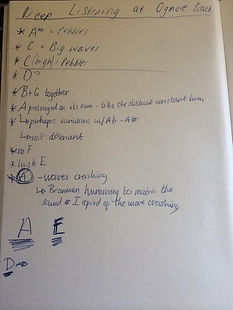 Deep Listening at Ogmore Beach
* A** = Pebbles
* C = Big waves
* C (high) = Pebbles
* D
* B + G together
* A prolonged on its own - like the distant constant hum
* ↳ perhaps variations w/ Ab - A#
↳ not dissonant
* no F
* high E
* A - waves crashing
↳ humming to match the sound of the wave crashing
A E
D